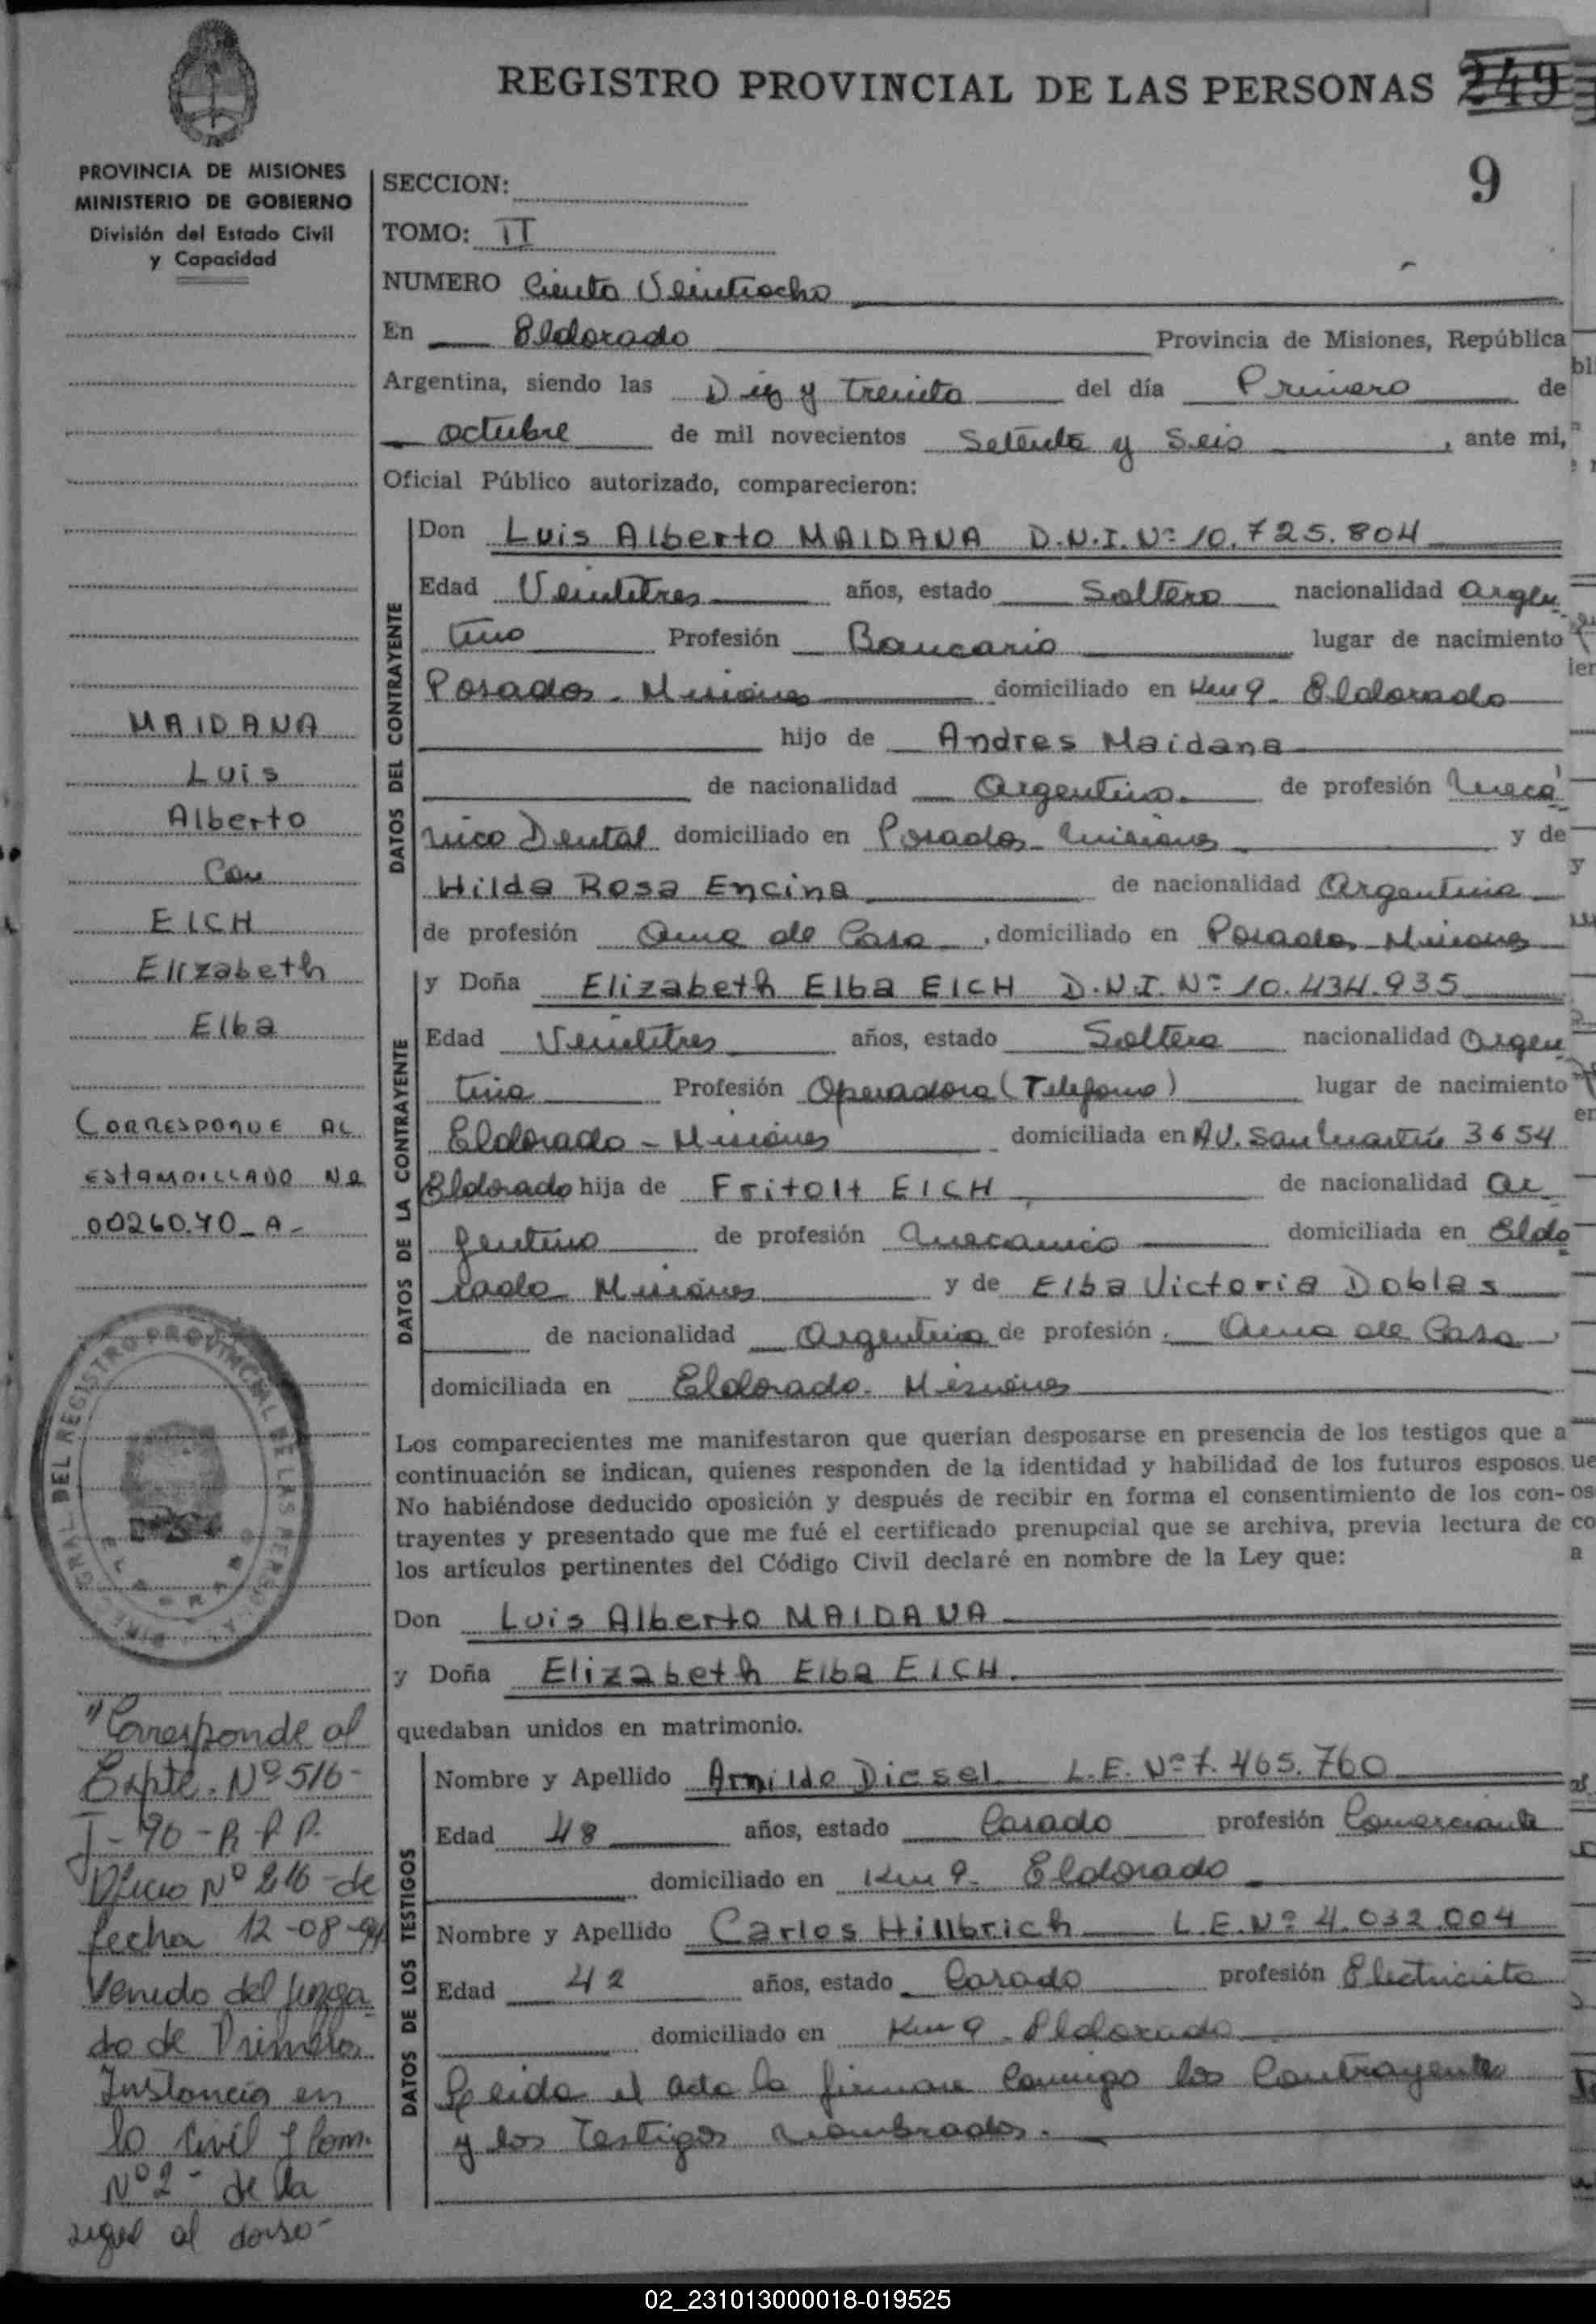 REGISTRO PROVINCIAL DE LAS PERSONAS 249
9
PROVINCIA DE MISIONES
MINISTERIO DE GOBIERNO
División del Estado Civil
y Capacidad
SECCION:
TOMO: II
NUMERO Ciento Veintiocho
En Eldorado Provincia de Misiones, República
Argentina, siendo las Diez y Treinta del día Primero de
octubre de mil novecientos Setenta y Seis, ante mi,
Oficial Público autorizado, comparecieron:
DATOS DEL CONTRAYENTE
Don Luis Alberto MAIDANA D.N.I. Nº 10.725.804
Edad Veintitres años, estado Soltero nacionalidad Argen
tino Profesión Bancario lugar de nacimiento
Posadas - Misiones domiciliado en Km 9 - Eldorado
hijo de Andres Maidana
de nacionalidad Argentina de profesión Mecá
nico Dental domiciliado en Posadas Misiones y de
Hilda Rosa Encina de nacionalidad Argentina
de profesión Ama de Casa, domiciliado en Posadas, Misiones
DATOS DE LA CONTRAYENTE
y Doña Elizabeth Elba EICH D.N.I. Nº 10.434.935
Edad Veintitres años, estado Soltera nacionalidad Argen
tina Profesión Operadora (Telefono) lugar de nacimiento
Eldorado - Misiones domiciliada en AV. San Martín 3654
Eldorado hija de Fritolt EICH de nacionalidad Ar
gentino de profesión Mecanico domiciliada en Eldo
rado Misiones y de Elba Victoria Doblas
de nacionalidad Argentina de profesión Ama de Casa
domiciliada en Eldorado. Misiones
Los comparecientes me manifestaron que querían desposarse en presencia de los testigos que a
continuación se indican, quienes responden de la identidad y habilidad de los futuros esposos.
No habiéndose deducido oposición y después de recibir en forma el consentimiento de los con-
trayentes y presentado que me fué el certificado prenupcial que se archiva, previa lectura de
los artículos pertinentes del Código Civil declaré en nombre de la Ley que:
Don Luis Alberto MAIDANA
y Doña Elizabeth Elba EICH
quedaban unidos en matrimonio.
DATOS DE LOS TESTIGOS
Nombre y Apellido Arnildo Diesel L.E. Nº 7.465.760
Edad 48 años, estado Casado profesión Comerciante
domiciliado en Km 9 - Eldorado
Nombre y Apellido Carlos Hillbrich L.E. Nº 4.032.004
Edad 42 años, estado Casado profesión Electricista
domiciliado en Km 9 - Eldorado
Leida el acta la firman conmigo los Contrayentes
y los Testigos nombrados.
MAIDANA
Luis
Alberto
Con
EICH
Elizabeth
Elba
CORRESPONDE AL
ESTAMPILLADO Nº
0026070-A-
DEL REGISTRO PROVINCIAL DE LAS PERSONAS
"Corresponde al
Expte. Nº 516-
J-90-R.P.P.
Oficio Nº 816-de
fecha 12-08-91
Venido del Juzga
do de Primera
Instancia en
lo Civil y Com.
Nº 2 - de la
sigue al dorso-
02_231013000018-019525